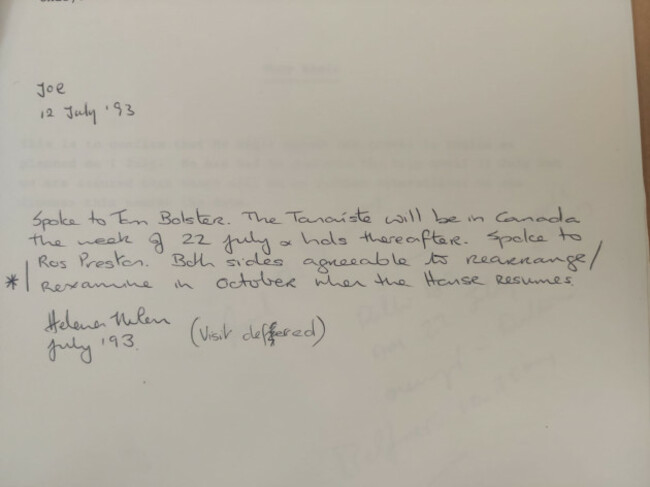 Joe
12 July '93
Spoke to Tom Bolster. The Tanaiste will be in Canada
the week of 22 July & hols thereafter. Spoke to
Ros Preston. Both sides agreeable to rearrange/
* Rexamine in October when the House resumes.
Helena
July '93. (Visit deferred)